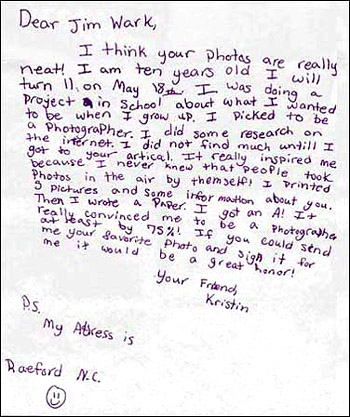 Dear Jim Wark,
I think your photos are really
neat! I am ten years old I will
turn 11 on May 18th I was doing a
Project in School about what I wanted
to be when I grow up. I picked to be
a Photographer. I did some research on
the internet. I did not find much untill I
got to your artical. It really inspired me
because I never knew that people took
Photos in the air by themself! I Printed
9 Pictures and some infor mation about you.
Then I wrote a PaPer. I got an A! It
really convinced me to be a Photographer
at least by 75%! If you could send
me your favorite Photo and sign it for
me it would be a great honor!
Your Friend,
Kristin
P.S.
My Adress is
Raeford N.C.